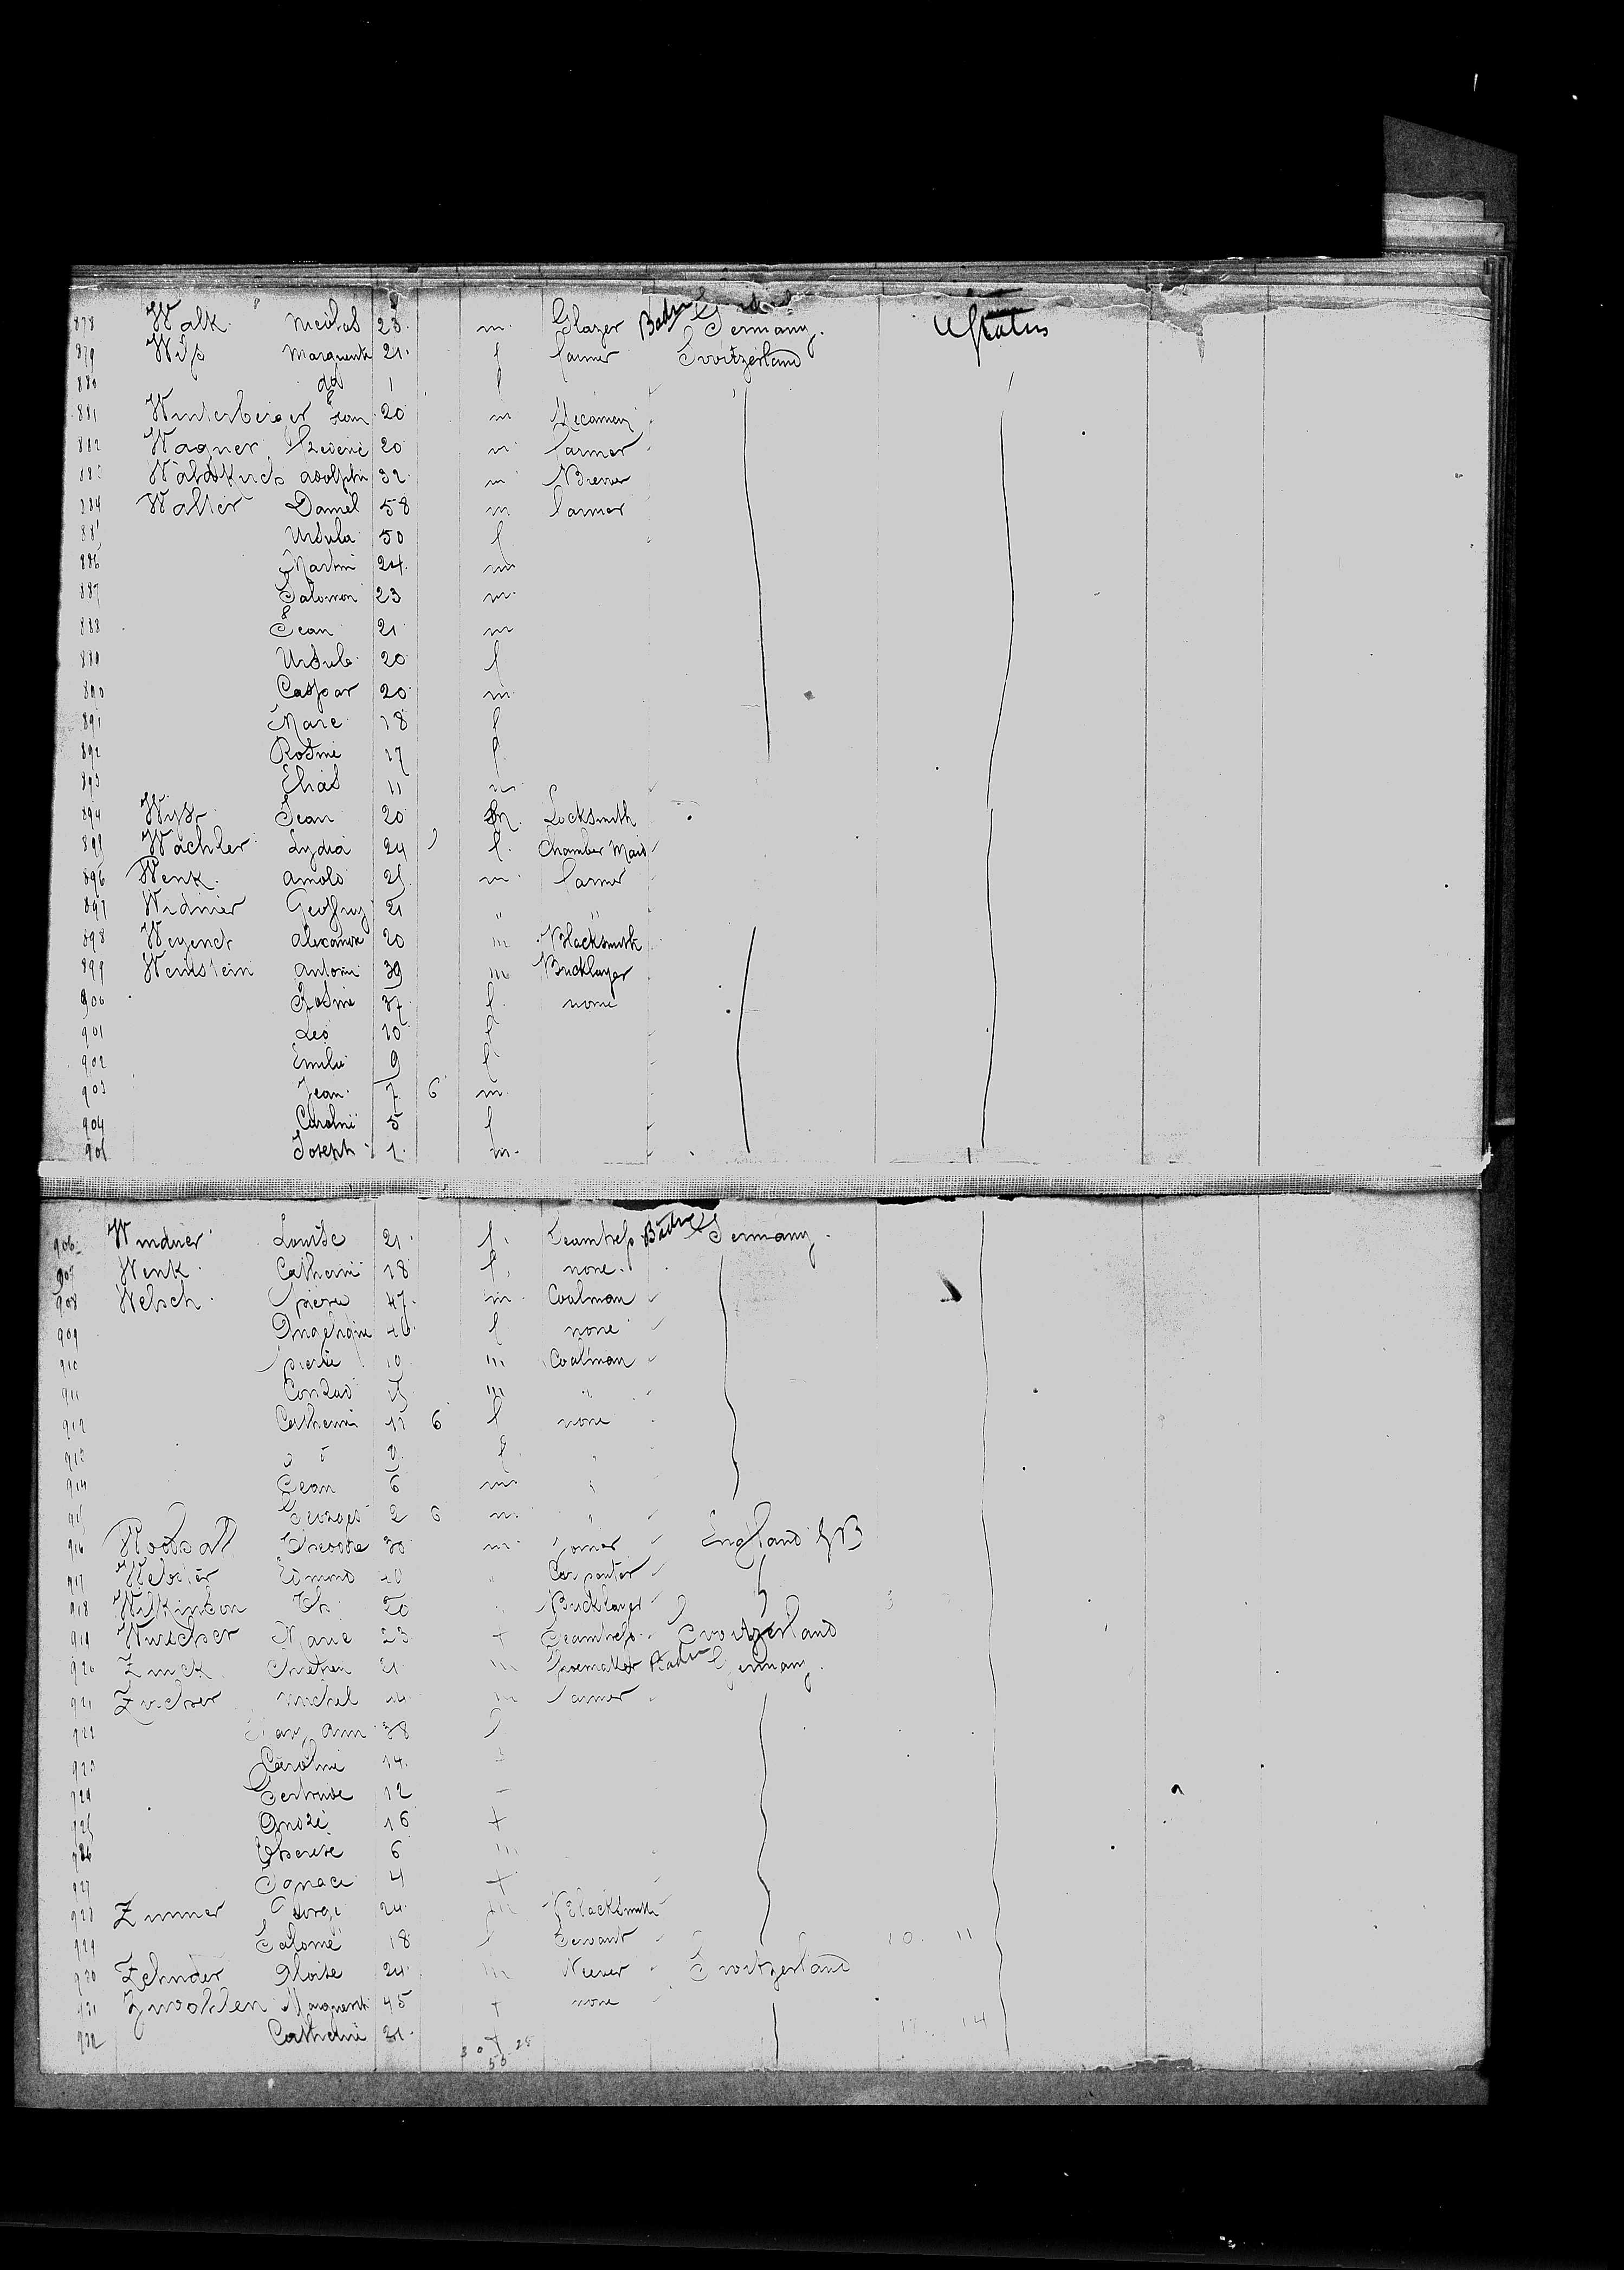 878 Walk Nicolas 23 m. Glazer Baden Germany. U States
879 Wifs Marguerite 21 f farmer Switzerland
880 do 1 f
881 Winterberger Jean 20 m
882 Wagner Frederic 20 m farmer
883 Adolphe 32 m Brewer
884 Walter Daniel 58 m farmer
885 Ursula 50 f
886 Martin 24. m
887 Salomon 23 m.
888 Jean 21 m
889 Ursule 20 f
890 Caspar 20 m
891 Marie 18 f
892 Rosine 17 f.
893 Elias 11 m
894 Wyss Jean 20 m. Locksmith
895 Wachler Lydia 24 f. Chamber Maid
896 Wenk Arnold 25 m. farmer
897 Widmer Geoffroy 21 " "
898 Alexandre 20 m Blacksmith
899 Weinstein Antoine 39 m Bricklayer
900 Rosine 37 f. none
901 Leo 10 f
902 Emilie 9 f
903 Jean 7 6 m
904 Caroline 5 f
905 Joseph 1 m.
906 Windner Louise 21 f. Seamtress Baden Germany.
907 Wenk Catherine 18 f. none.
908 Welsch Pierre 47 m. Coalman
909 Angelique 40 f none
910 Pierre 10 m Coalman
911 Conrad 15 m "
912 Catherine 11 6 f none
913 f "
914 Jean 6 m "
915 Georges 2 6 m "
916 Theodore 30 m. England GB
917 Webster Edmund 40 " Carpenter
918 Wilkinson Th. 20 " Bricklayer
919 Marie 23 f Seamtress Switzerland
920 Zinck Chretien 21 m Shoemaker Baden Germany.
921 Zircher Michel 44 m farmer
922 Mary Ann 38 f
923 Caroline 14 f
924 Gertrude 12 -
925 André 16 +
926 Therese 6 m
927 Ignace 4 +
928 Zimmer George 24 m Blacksmith
929 Salomé 18 f Servant 10. 11
930 Zehnder Aloise 24 m Weever Switzerland
931 Zwahlen Marguerite 45 + none
932 Catherine 21 f 17. 14
30 28